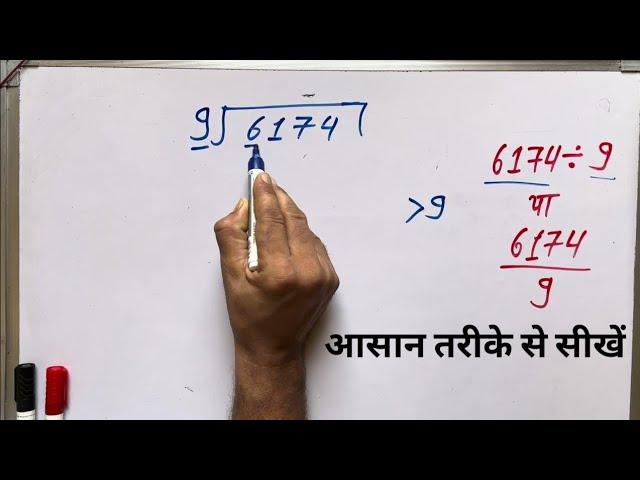 9 6174
6174 ÷ 9
>9
पा
6174
9
आसान तरीके से सीखें